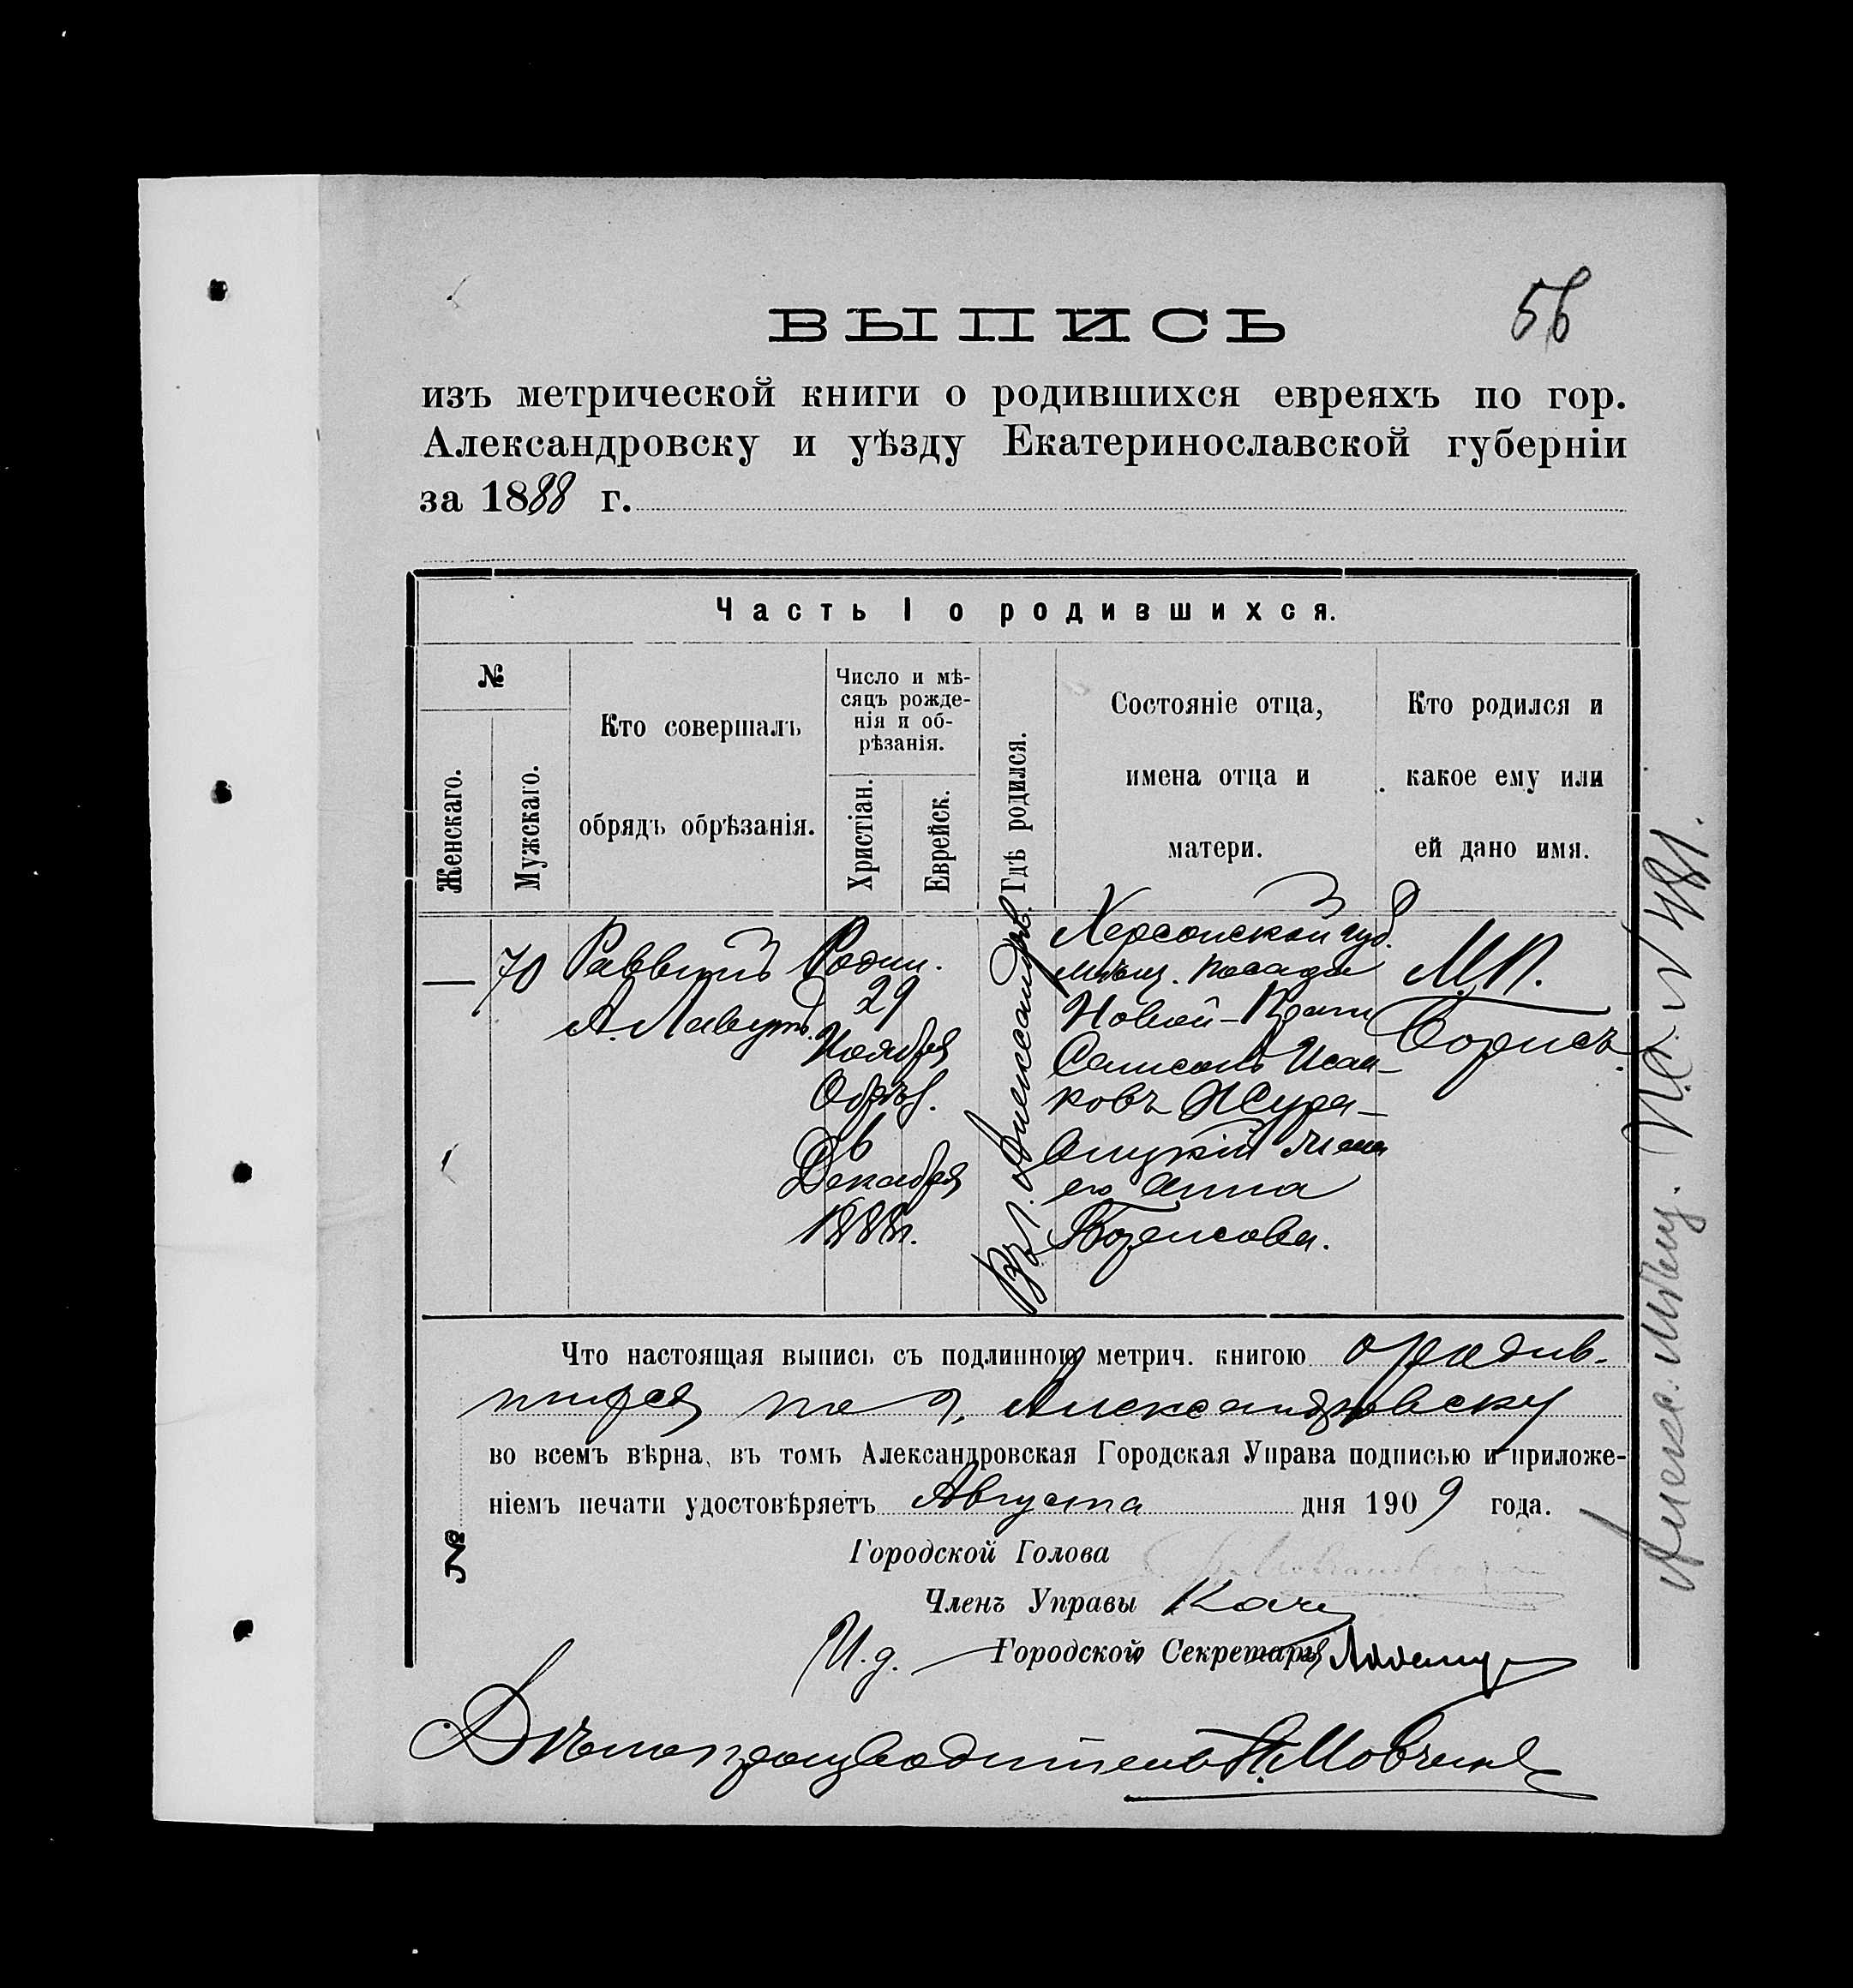 56
ВЫПИСЬ
изъ метрической книги о родившихся евреяхъ по гор.
Александровску и уѣзду Екатеринославской губерніи
за 1888 г.
Часть I о родившихся.
№
Женскаго.
Мужскаго.
Кто совершалъ
обрядъ обрѣзанія.
Число и мѣ-
сяцъ рожде-
нія и об-
рѣзанія.
Христіан.
Еврейск.
Гдѣ родился.
Состояніе отца,
имена отца и
матери.
Кто родился и
какое ему или
ей дано имя.
—
70
Раввинъ
А. Лавутъ
Родил.
29
Ноября
Обрѣз.
6
Декабря
1888 г.
Въ г. Александров.
Херсонской губ.
мѣщ. посада
Новой-Праги
Самсонъ Исаа-
ковъ Жура-
вицкій жена
его Анна
Борисова.
М.П.
Борисъ.
Что настоящая выпись съ подлинною метрич. книгою о родив-
шихся по г. Александровску
во всемъ вѣрна, въ томъ Александровская Городская Управа подписью и приложе-
ніемъ печати удостовѣряетъ Августа дня 1909 года.
№
Городской Голова
Членъ Управы
И.д. Городской Секретарь
Дѣлопроизводитель Мовчан
Алекс. Мѣщ. П.С. № 481.